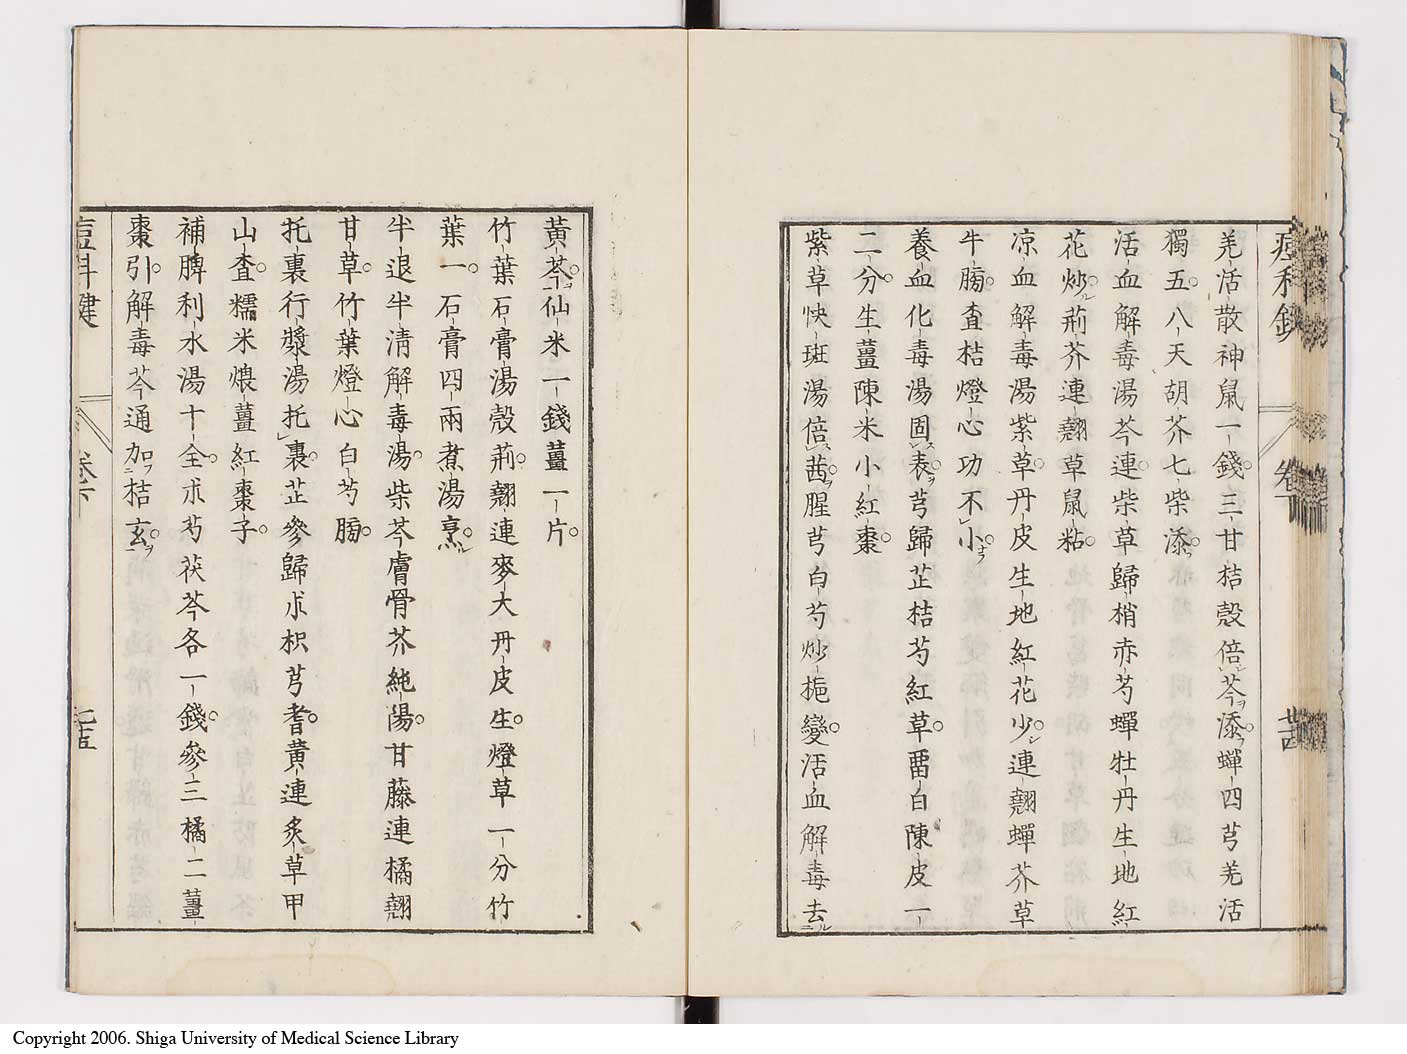 羌活散神鼠一錢三甘桔殼倍芩添蟬四芎羌活
獨五八天胡芥七柴添
活血解毒湯芩連柴草歸梢赤芍蟬牡丹生地紅
花炒荊芥連翹草鼠粘
凉血解毒湯紫草丹皮生地紅花少連翹蟬芥草
牛膓査桔燈心功不小
養血化毒湯固表芎歸芷桔芍紅草畱白陳皮一
二分生薑陳米小紅棗
紫草快斑湯倍茜腥芎白芍炒梔變活血解毒去
黃芩仙米一錢薑一片
竹葉石膏湯殼荊翹連麥大丹皮生燈草一分竹
葉一石膏四兩煮湯烹
半退半清解毒湯柴芩膚骨芥純陽甘藤連橘翹
甘草竹葉燈心白芍膓
托裏行漿湯托裏芷參歸朮枳芎耆黃連炙草甲
山査糯米煨薑紅棗子
補脾利水湯十全朮芍茯芩各一錢參三橘二薑
棗引解毒芩通加桔玄
卷下
Copyright 2006. Shiga University of Medical Science Library